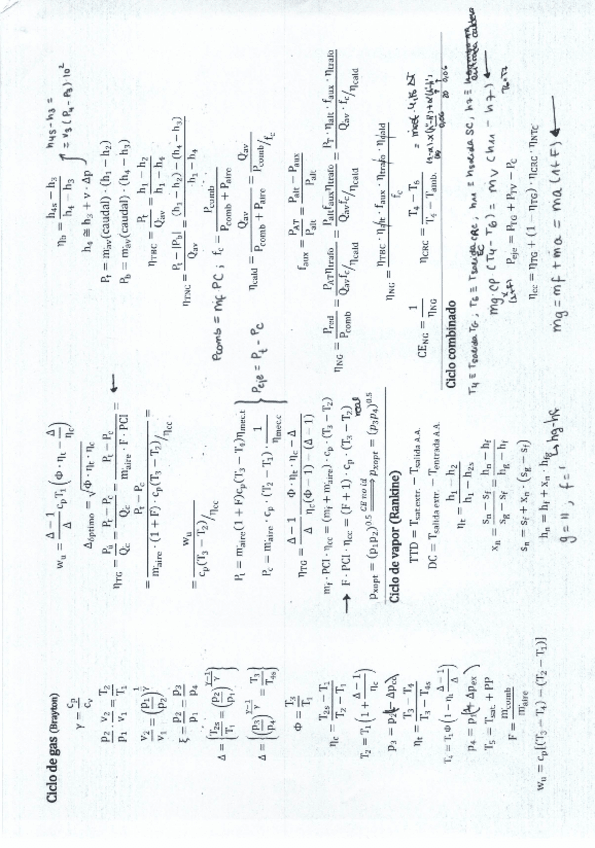 Ciclo de gas (Brayton)
γ = cp / cv
p2/p1 · v2/v1 = T2/T1
v2/v1 = (p1/p2)^(1/γ)
ξ = p2/p1 = p3/p4
Δ = {T2s/T1 = (p2/p1)^((γ−1)/γ)}
Δ = {(p3/p4)^((γ−1)/γ) = T3/T4s}
Φ = T3/T1
ηc = (T2s − T1)/(T2 − T1)
T2 = T1 (1 + (Δ − 1)/ηc)
ηt = (T3 − T4)/(T3 − T4s)
T4 = T1Φ (1 − ηt (Δ − 1)/Δ)
T5 = Tsat. + PP
F = ṁcomb/ṁaire
wu = cp[(T3 − T4) − (T2 − T1)]
wu = (Δ − 1)/Δ cpT1 (Φ · ηt − Δ/ηc)
Δóptimo = √(Φ · ηt · ηc)
ηTG = Pa/Qc = (Pt − Pc)/Qc = (Pt − Pc)/(ṁaire · F · PCI) =
= (Pt − Pc)/(ṁaire · (1 + F) · cp(T3 − T2)/ηcc) =
= wu/(cp(T3 − T2)/ηcc)
Pt = ṁaire(1 + F)cp(T3 − T4)ηmec.t
Pc = ṁaire · cp · (T2 − T1) · 1/ηmec.c
Peje = Pt − Pc
ηTG = (Δ − 1)/Δ · (Φ · ηt · ηc − Δ)/(ηc(Φ − 1) − (Δ − 1))
ṁf · PCI · ηcc = (ṁf + ṁaire) · cp · (T3 − T2)
→ F · PCI · ηcc = (F + 1) · cp · (T3 − T2) real
pxopt = (p1p2)^0.5 ⟹ pxopt = (p3p4)^0.5
Ciclo de vapor (Rankine)
TTD = Tsat extr. − Tsalida A.A.
DC = Tsalida extr. − Tentrada A.A.
ηt = (h1 − h2)/(h1 − h2s)
xn = (sn − sf)/(sg − sf) = (hn − hf)/(hg − hf)
sn = sf + xn · (sg − sf)
hn = hf + xn · hfg
hg-hf
ηb = (h4s − h3)/(h4 − h3)
h4s-h3 =
= v3 (P4 - P3) 10²
h4 ≅ h3 + v · Δp
Pt = ṁav(caudal) · (h1 − h2)
Pb = ṁav(caudal) · (h4 − h3)
ηTBC = Pt/Q̇av = (h1 − h2)/(h1 − h4)
ηTNC = (Pt − |Pb|)/Qav = ((h1 − h2) − (h4 − h3))/(h1 − h4)
Pcomb = ṁf PC ; fc = Pcomb/(Pcomb + Paire)
ηcald = Qav/(Pcomb + Paire) = Qav/(Pcomb/fc)
faux = PAT/Palt = (Palt − Paux)/Palt
ηNG = Pred/Pcomb = PATηtrafo/(Qavfc/ηcald) = Paltfauxηtrafo/(Qavfc/ηcald) = (PT · ηalt · faux · ηtrafo)/(Qav · fc/ηcald)
ηNG = (ηTBC · ηalt · faux · ηtrafo · ηcald)/fc
CENG = 1/ηNG
ηCRC = (T4 − T6)/(T4 − Tamb.)
Ciclo combinado
T4 ≡ Tsalida TG ;
ṁg · cp (T4 - T6) = ṁv (h11 - h7) ←
(1+F)
Peje = PTG + PTV − PC
ηcc = ηTG + (1 − ηTG) · ηCRC · ηNTC
ṁg = ṁf + ṁa = ṁa (1+F) ←